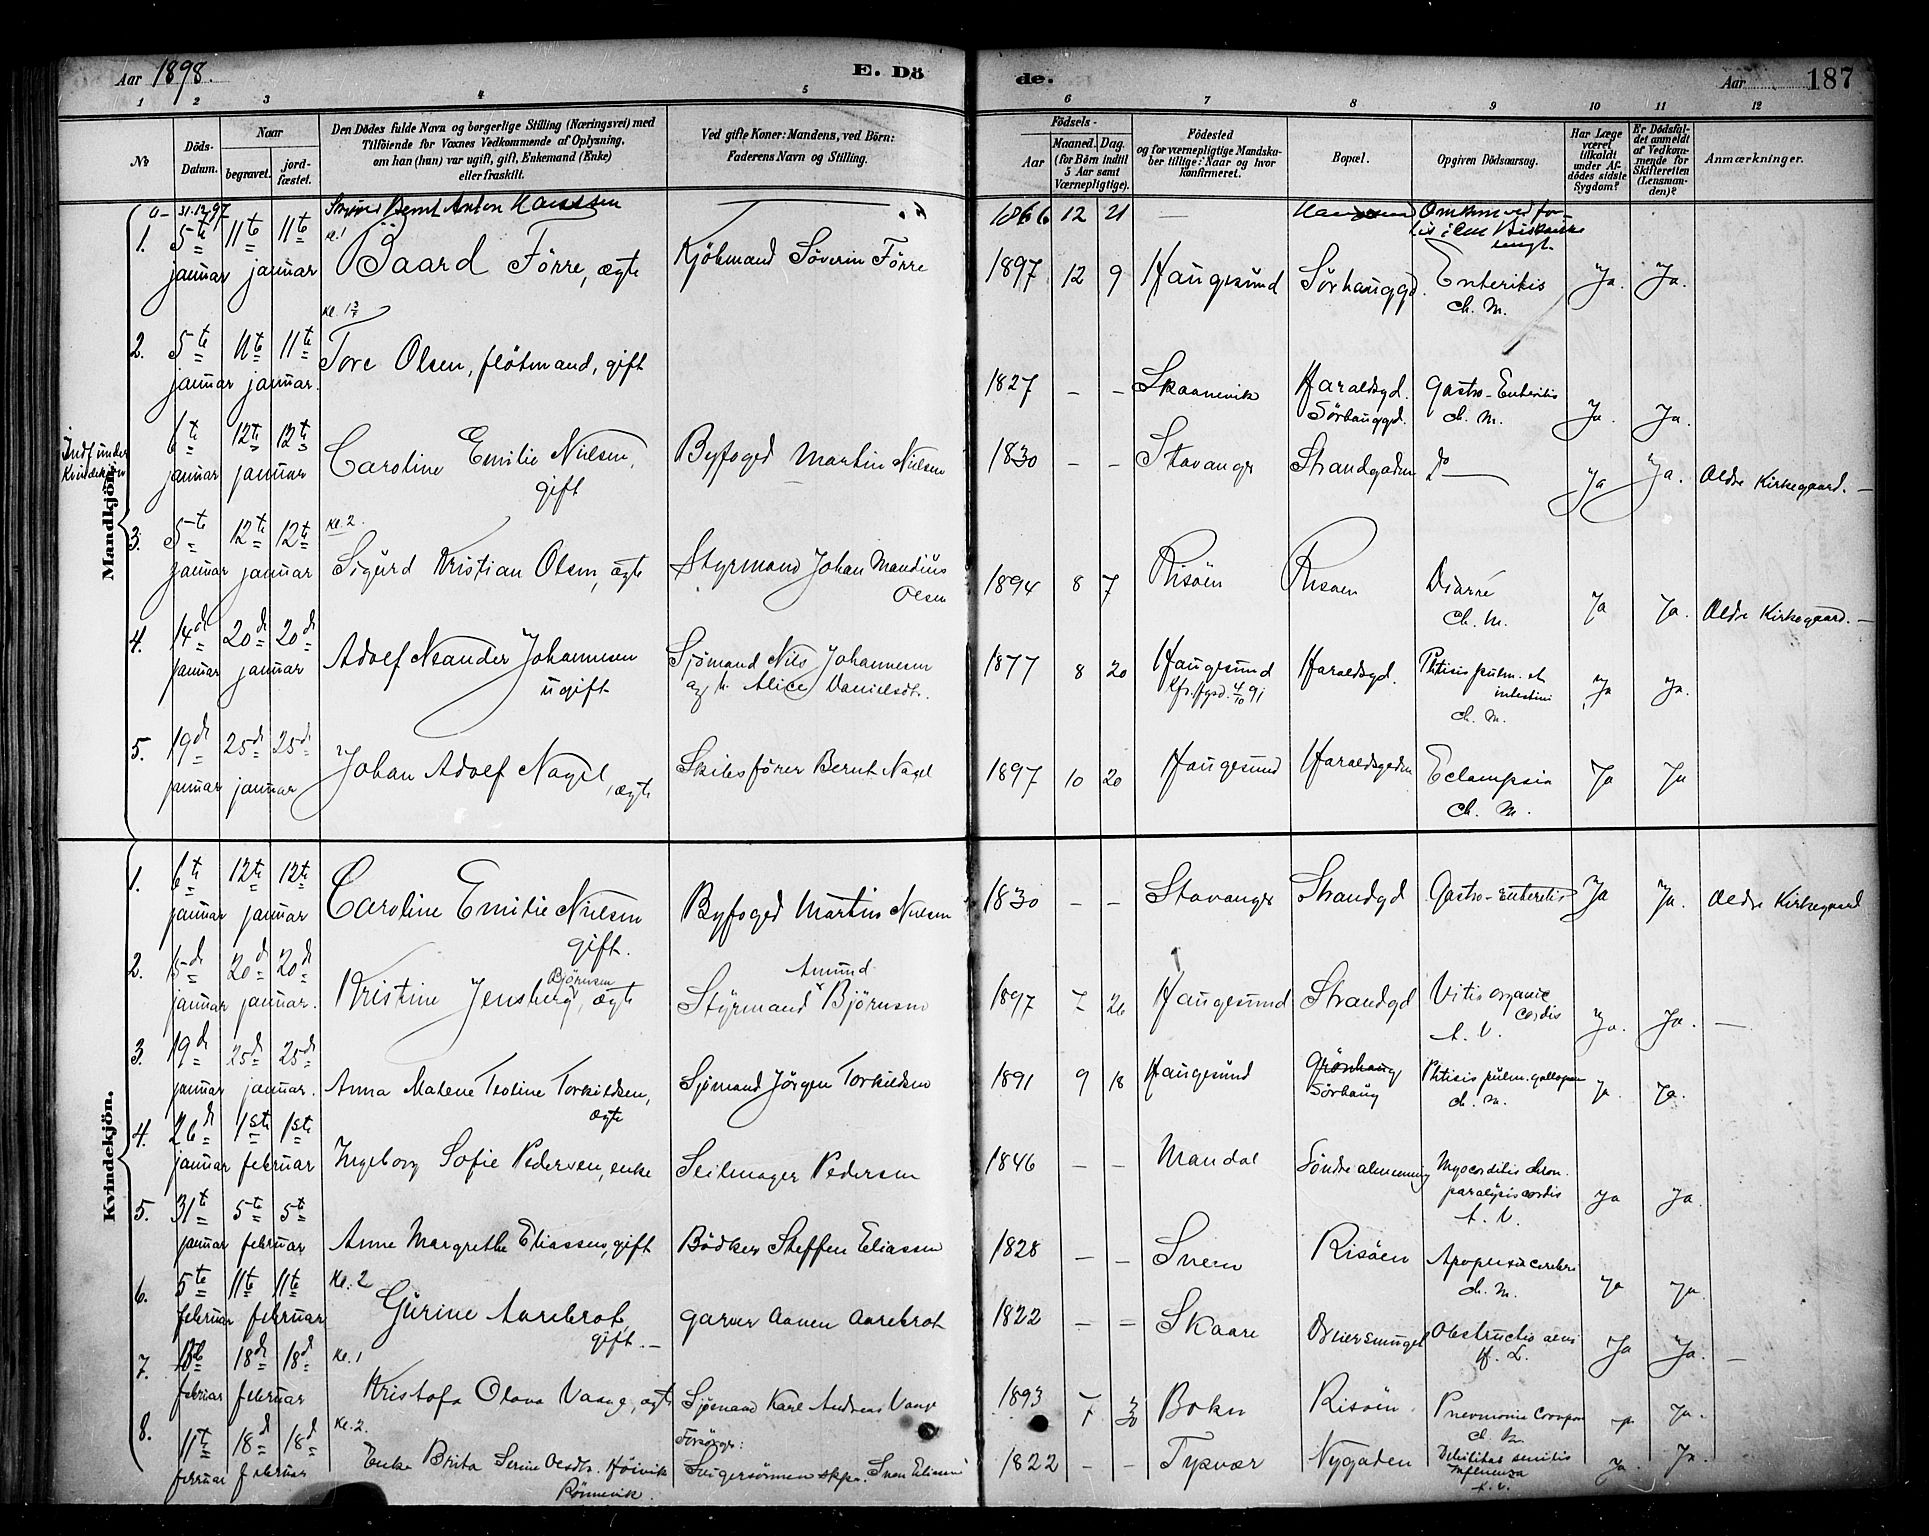 Aar 1898. E. Dö de. Aar 187
1 2 3 4 5 6 7 8 9 10 11 12
No
Döds-Datum.
Naar begravet. jordfæstet.
Den Dödes fulde Navn og borgerlige Stilling (Næringsvei) med
Tilföiende for Voxnes Vedkommende af Oplysning,
om han (hun) var ugift, gift, Enkemand (Enke)
eller fraskilt.
Ved gifte Koner: Mandens, ved Börn:
Faderens Navn og Stilling.
Födsels-
Aar Maaned. Dag.
(for Börn indtil 5 Aar samt Værnepligtige).
Födested
og for værnepligtige Mandskaber tillige: Naar og hvor konfirmeret.
Bopæl.
Opgiven Dödsaarsag.
Har Læge været tilkaldt under Afdödes sidste Sygdom?
Er Dödsfaldet anmeldt af Vedkommende for Skifteretten (Lensmanden)?
Anmærkninger.
Mandkjön.
a- 31.12.97 Bernt Anton 1866 12 21 — Omkom ved forlis i
1. 5te januar 11te januar 11te Kl. 1 Baard Förre, ægte Kjöbmand Söverin Förre 1897 12 9 Haugesund Sörhauggd. Enteritis Ch. M. Ja. Ja.
2. 5te januar 11te januar. 11te Tore Olsen, flötmand, gift 1827 - - Skaanevik Haraldsgd. Sörhauggd. Gastro-Enteritis Ch. M. Ja. Ja.
Indf. under Kvindekjön 6te januar 12te januar 12te Caroline Emilie Nielsen, gift Byfoged Martin Nielsen 1830 - - Stavanger Strandgaden Do Ja Ja. Ældre Kirkegaard. —
3. 5te januar 12te januar 12te Kl. 2. Sigurd Kristian Olsen, ægte Styrmand Johan Mandius Olsen 1894 8 7 Risöen Risöen Diarré Ch. M. Ja Ja. Ældre Kirkegaard. —
4. 14de januar 20de januar 20de Adolf Neander Johannesen ugift Sjömand Nils Johannesen og h. Alice Danielsdt. 1877 8 20 Haugesund 4/10 91 Haraldsgd. Phtisis pulm. et intestini Ch. M. Ja Ja.
5. 19de januar 25de januar 25de Johan Adolf Nagel, ægte Skibsförer Bernt Nagel 1897 10 20 Haugesund Haraldsgaden Eclampsia Ch. M. Ja Ja
Kvindekjön.
1. 6te januar 12te januar 12te Caroline Emilie Nielsen gift. Byfoged Martin Nielsen 1830 - - Stavanger Strandgd Gastro-Enteritis Ja Ja. Ældre Kirkegaard
2. 15de januar 20de januar. 20de Kristine Jensberg Björnsen, ægte Styrmand Amund Björnsen 1897 7 26 Haugesund Strandgd Vitis organic cordis A. V. Ja. Ja. —
3. 19de januar 25de januar. 25de Anna Malene Teoline Torkildsen, ægte Sjömand Jörgen Torkildsen 1891 9 18 Haugesund Grönhaug Sörhaug Phtisis pulm. galloperr Ch. M. Ja. Ja.
4. 26de januar 1ste februar 1ste Ingeborg Sofie Pedersen, enke Seilmager Pedersen 1846 - - Mandal Söndre almenning Myocarditis chron. paralysis cordis A. V. Ja Ja.
5. 31te januar 5te februar 5te Anne Margrethe Eliassen, gift Bödker Steffen Eliassen 1828 - - Sveen Risöen Apoplexia cerebri Ch. M. Ja Ja.
6. 5te februar 11te februar 11te Kl. 2 Gurine Aarebrot, gift.— Garver Aanen Aarebrot 1822 - - Skaare Obstructio alvi Ja Ja. —
7. februar 18de februar 18de Kl. 1 Kristofa Olava Vaage, ægte Sjömand Karl Andreas Vaage 1893 7 30 Bokn Risöen Pneumonia Croupos Ch. M. Ja Ja.
8. 11te februar 18de februar 18de Kl. 2. Enke Brita Serine Olsdtr. Höivik Rönnevik. Forsörger: Svigersönnen skpr. Sven Eliassen 1822 - - Tysvær Nygaden Debilitas senilis Influenza A. V. Ja. Ja.